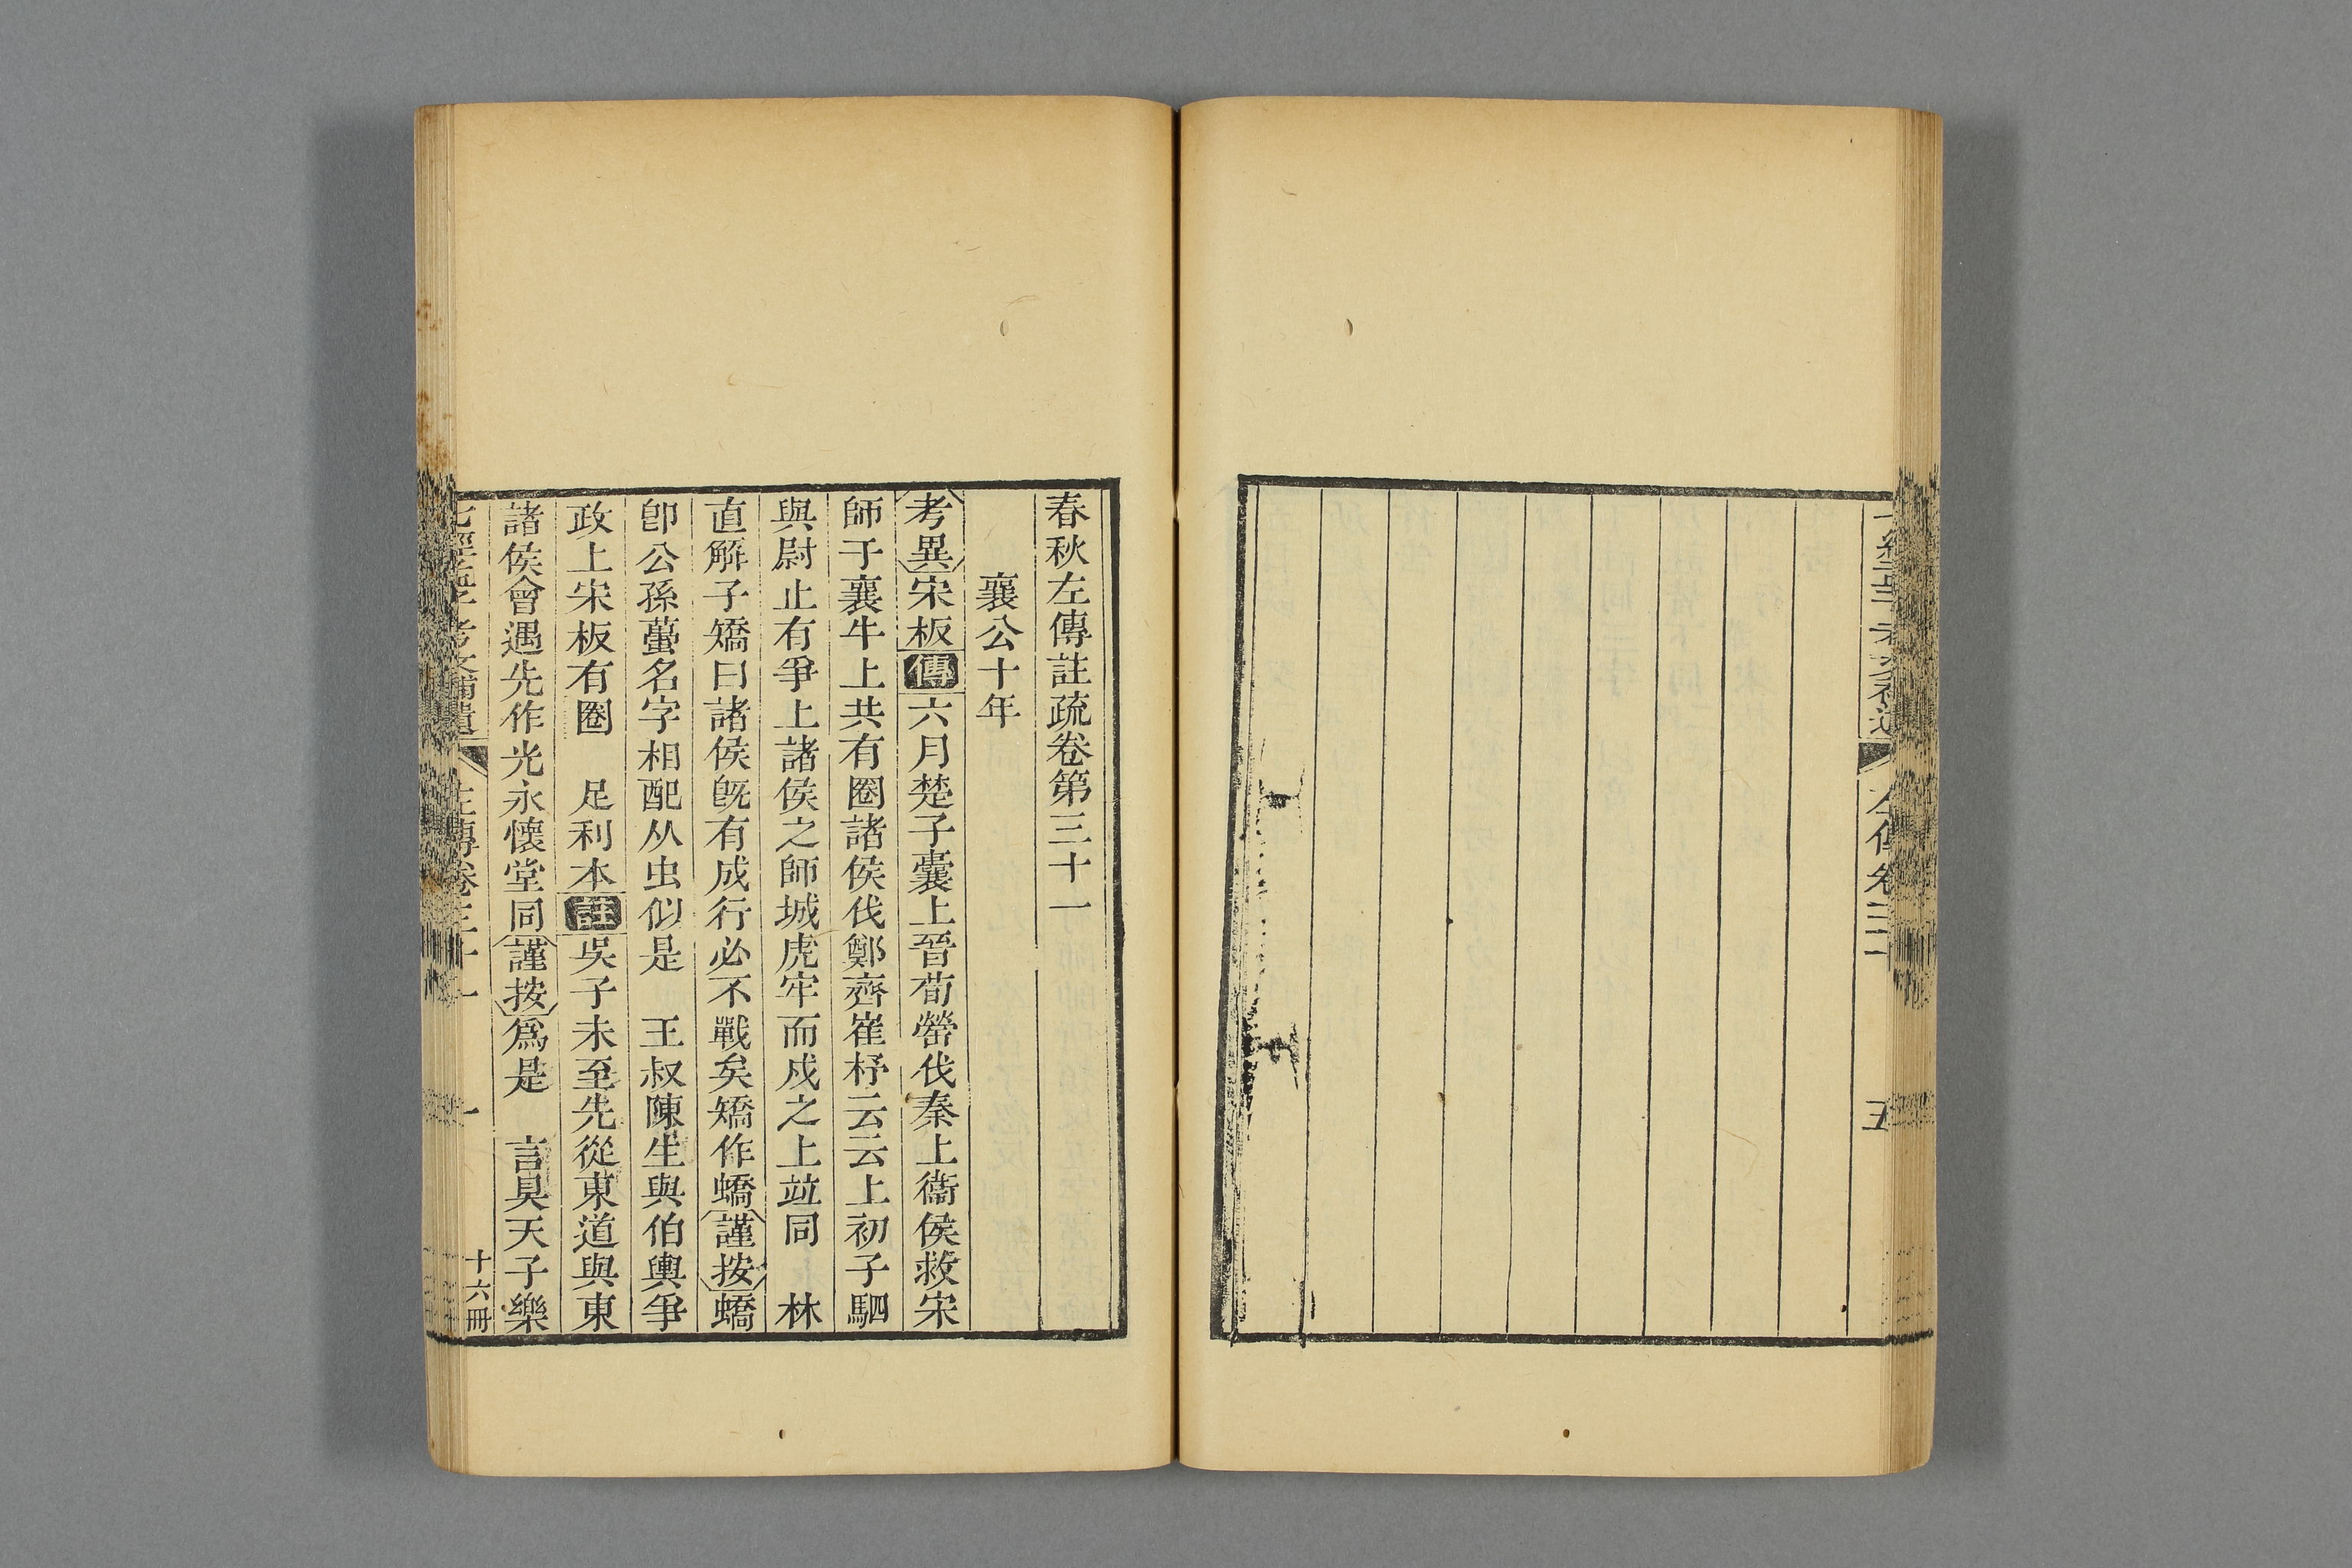 五
春秋左傳註疏卷第三十一
襄公十年
考異宋板傳六月楚子囊上晉荀罃伐秦上衞侯救宋
師于襄牛上共有圈諸侯伐鄭齊崔杼云云上初子駟
與尉止有爭上諸侯之師城虎牢而戍之上竝同 林
直解子矯曰諸侯旣有成行必不戰矣矯作蟜謹按蟜
卽公孫蠆名字相配从虫似是 王叔陳生與伯輿爭
政上宋板有圈 足利本註吳子未至先從東道與東
諸侯會遇先作光永懷堂同謹按爲是 言具天子樂
七經孟子考文補遺 左傳卷三十一 一 十六冊